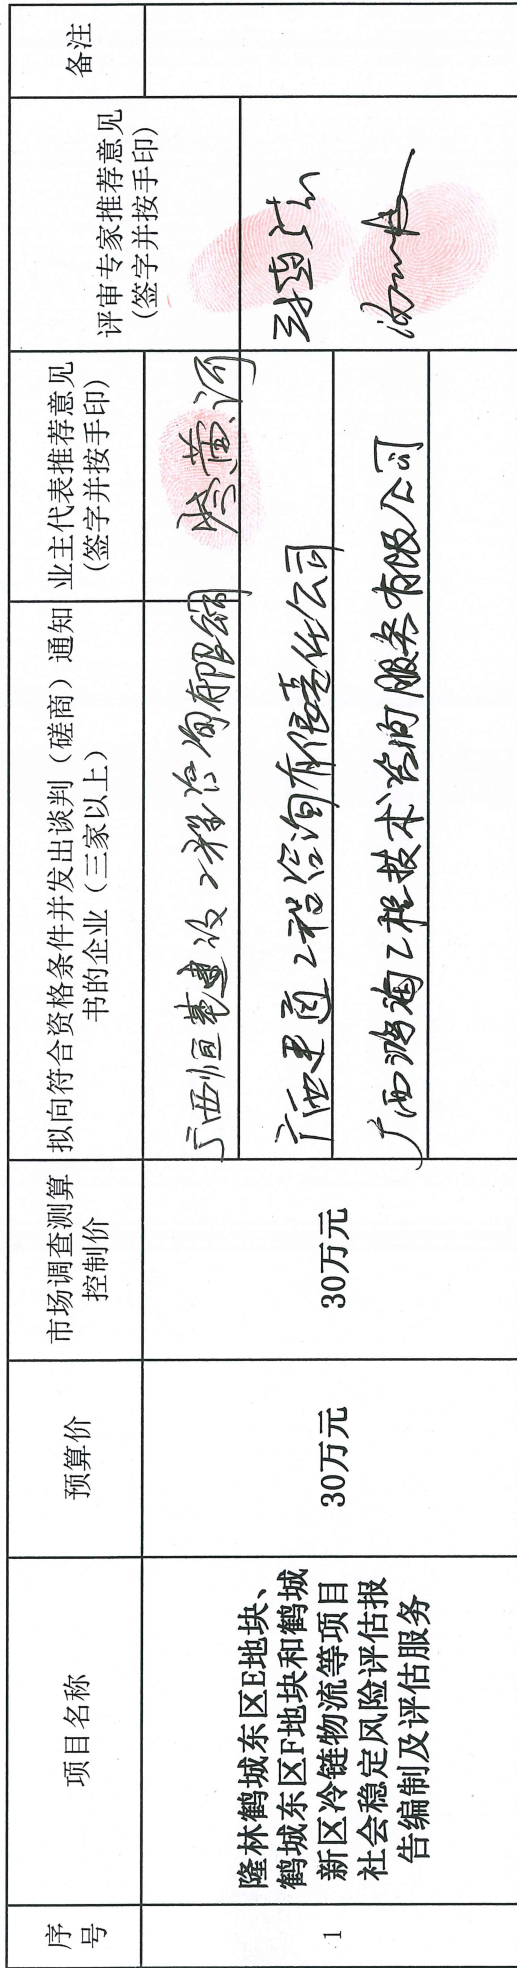 序
号
项目名称
预算价
市场调查测算
控制价
拟向符合资格条件并发出谈判（磋商）通知
书的企业（三家以上）
业主代表推荐意见
(签字并按手印)
评审专家推荐意见
(签字并按手印)
备注
1
隆林鹤城东区E地块、
鹤城东区F地块和鹤城
新区冷链物流等项目
社会稳定风险评估报
告编制及评估服务
30万元
30万元
广西恒基建设工程咨询有限公司
广西更园工程咨询有限责任公司
广西鸿海工程技术咨询服务有限公司